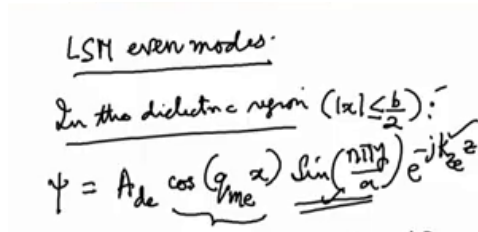 LSM even modes.
In the dielectric region (|x| ≤ b/2):-
ψ = A_de cos(q_me x) sin(nπy/a) e^-jk_ze z